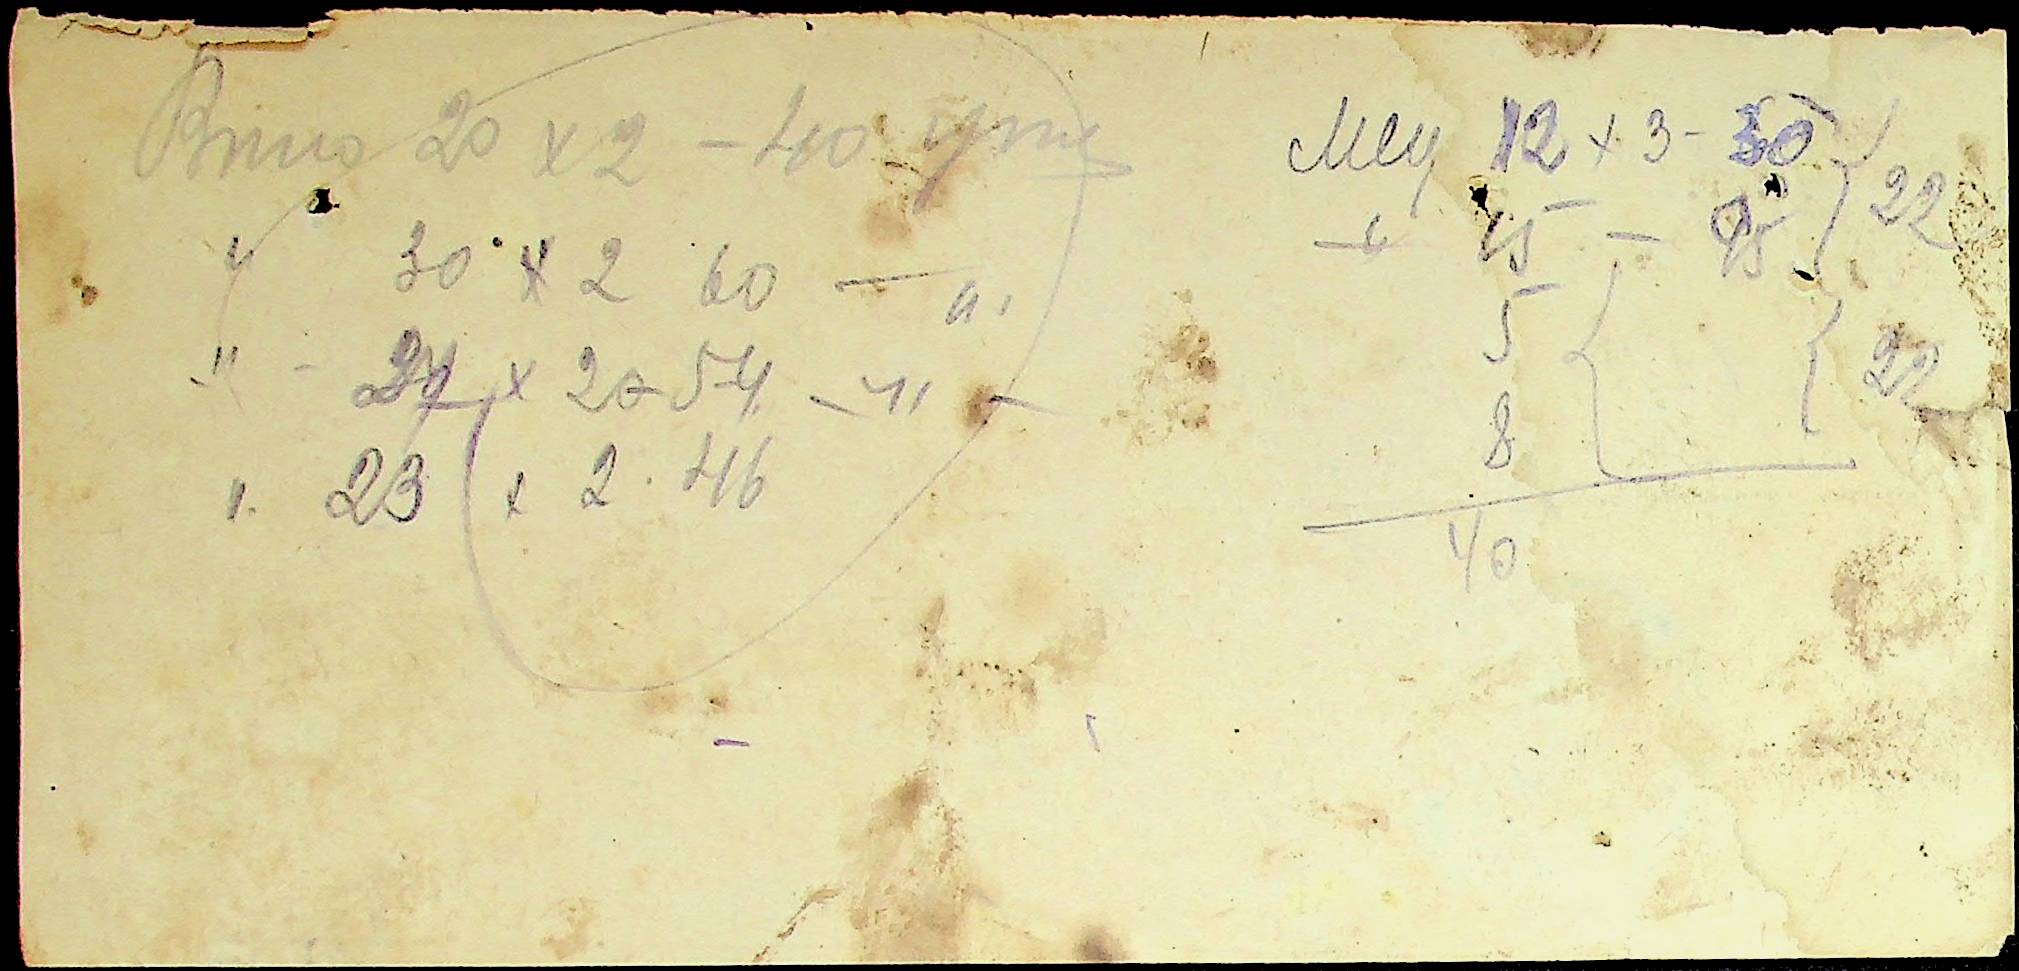 Вино 20 x 2 - 40
" 30 x 2 60 — " 
" - 27 x 2 - 54 — "
". 23 x 2. 46
12 x 3 - 30 } 22
— " 15 — 45
5
8 } 22
40